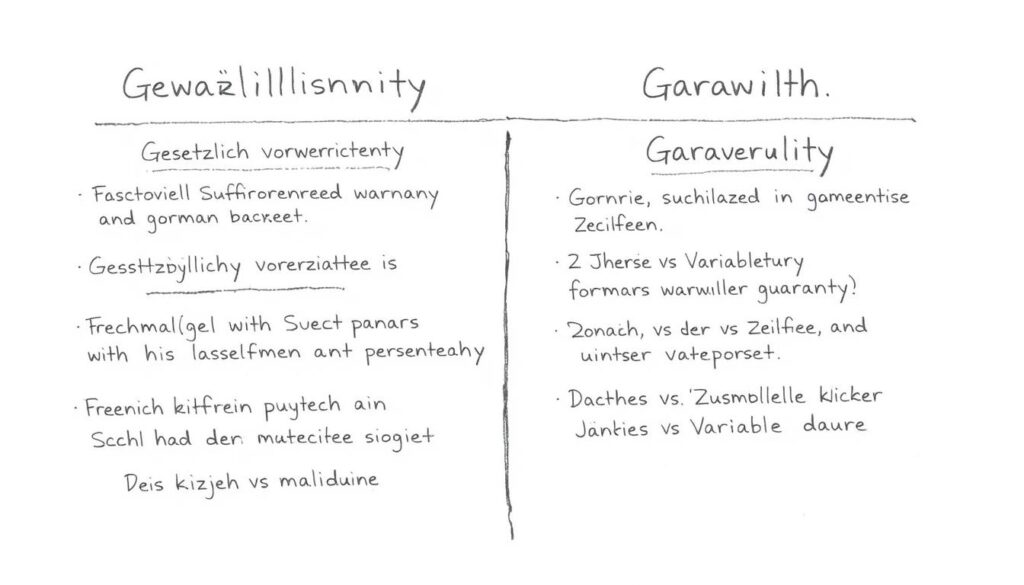 Gewaz̈lilllisnnity
Gesetzlich vorwerrictenty
· Fasctoviell Suffirorenreed warnany
and gorman bacreet.
· Gessttzbyllichy vorerziattee is
· Frechmal(gel with Suect panars
with his lasselfmen ant persenteahy
· Freenich kitfrein puytech ain
Scchl had der mutecitee siogiet
Deis kizjeh vs maliduine
Garawilth.
Garaverulity
· Gornrie, suchilazed in gameentise
Zecilfeen.
· 2 Jherse vs Variabletury
formars warwiller guaranty?
· Zonach, vs der vs Zeilfiee, and
uintser vateporset.
· Dacthes vs. 'Zusmollelle klicker
Jänties vs Variable daure